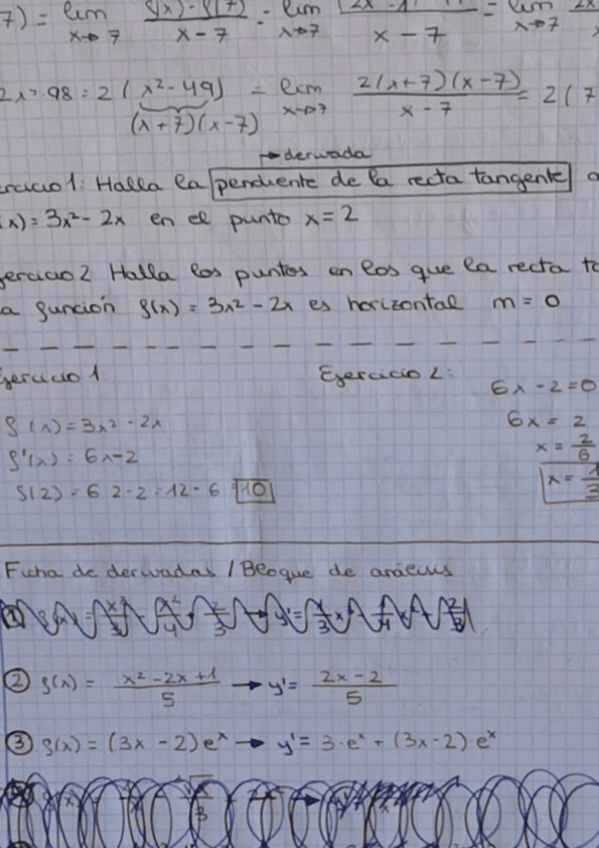 7) = lim x→7 f(x) - f(7) / x - 7 = lim x→7 / x - 7 = lim x→7
2x² - 98 = 2 (x² - 49) = lim x→7 2(x+7)(x-7) / x - 7 = 2(7
(x+7)(x-7)
→ derivada
ercicio 1: Halla la pendiente de la recta tangente a
(x) = 3x² - 2x en el punto x = 2
jercicio 2 Halla los puntos en los que la recta ta
a función f(x) = 3x² - 2x es horizontal m = 0
jercicio 1 Ejercicio 2:
6x - 2 = 0
f(x) = 3x² - 2x 6x = 2
f'(x) = 6x - 2 x = 2/6
f(2) = 6 2 - 2 = 12 - 6 10 x = 1/3
Ficha de derivadas / Bloque de análisis
② f(x) = x² - 2x + 1 / 5 → y' = 2x - 2 / 5
③ f(x) = (3x - 2) eˣ → y' = 3·eˣ + (3x - 2)·eˣ